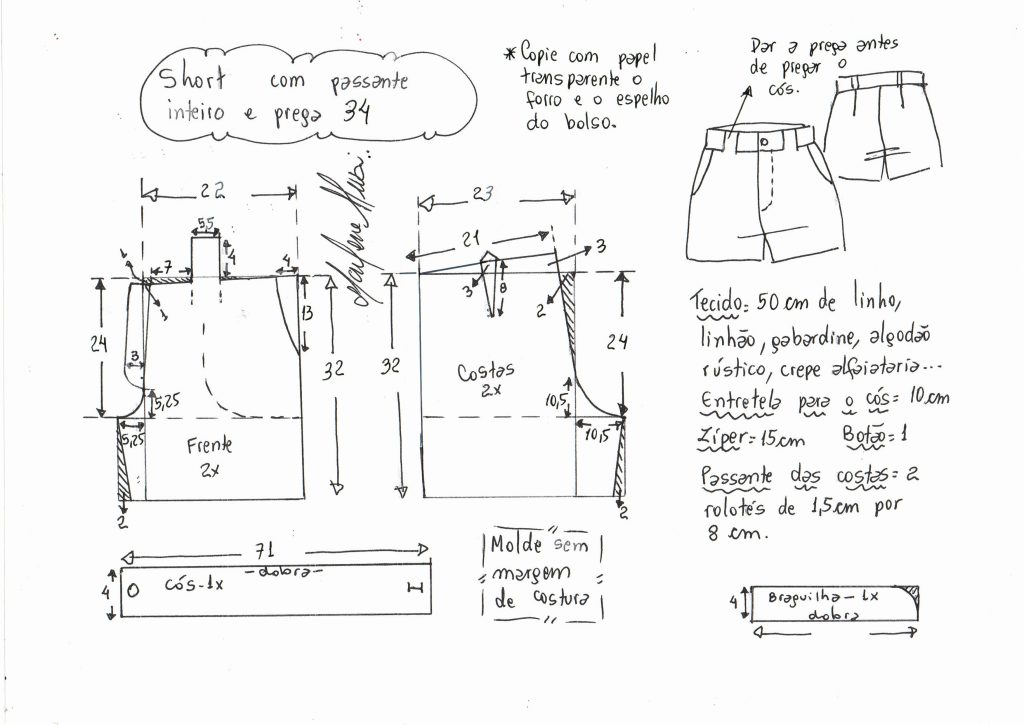 Short com passante
inteiro e prega 34
* Copie com papel
transparente o
forro e o espelho
do bolso.
Dar a prega antes
de pregar o
cós.
22
5,5
4
7
4
1
1
24
3
13
32
5,25
5,25
Frente
2x
2
23
21
3
3
8
2
32
24
Costas
2x
10,5
10,5
2
Tecido = 50 cm de linho,
linhão, gabardine, algodão
rústico, crepe alfaiataria...
Entretela para o cós = 10 cm
Zíper = 15 cm Botão = 1
Passante das costas = 2
rolotés de 1,5 cm por
8 cm.
71
4
cós - 1x
- dobra -
Molde sem
margem
de costura
4
Braguilha - 1x
dobra